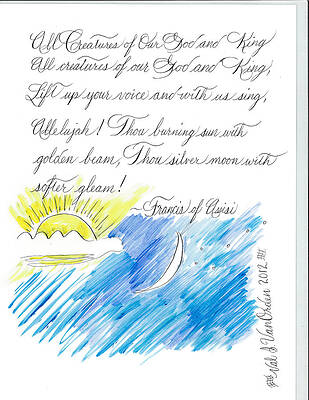 All Creatures of Our God and King
All creatures of our God and King,
Lift up your voice and with us sing,
Allelujah! Thou burning sun with
golden beam, Thou silver moon with
softer gleam!
~Francis of Assisi
Val J Van Orden 2012